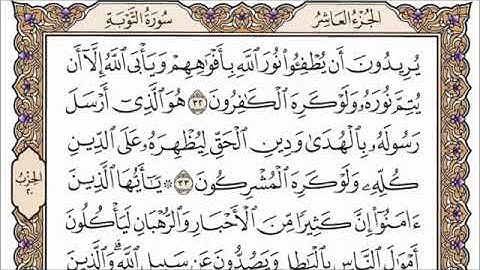 الجُزْءُ العَاشِرُ سُورَةُ التَّوْبَةِ
يُرِيدُونَ أَن يُطْفِـُٔوا۟ نُورَ ٱللَّهِ بِأَفْوَٰهِهِمْ وَيَأْبَى ٱللَّهُ إِلَّآ أَن
يُتِمَّ نُورَهُۥ وَلَوْ كَرِهَ ٱلْكَٰفِرُونَ ٣٢ هُوَ ٱلَّذِىٓ أَرْسَلَ
رَسُولَهُۥ بِٱلْهُدَىٰ وَدِينِ ٱلْحَقِّ لِيُظْهِرَهُۥ عَلَى ٱلدِّينِ
كُلِّهِۦ وَلَوْ كَرِهَ ٱلْمُشْرِكُونَ ٣٣ ۞ يَٰٓأَيُّهَا ٱلَّذِينَ
ءَامَنُوٓا۟ إِنَّ كَثِيرًا مِّنَ ٱلْأَحْبَارِ وَٱلرُّهْبَانِ لَيَأْكُلُونَ
أَمْوَٰلَ ٱلنَّاسِ بِٱلْبَٰطِلِ وَيَصُدُّونَ عَن سَبِيلِ ٱللَّهِ ۗ وَٱلَّذِينَ
الحِزْب
٢٠